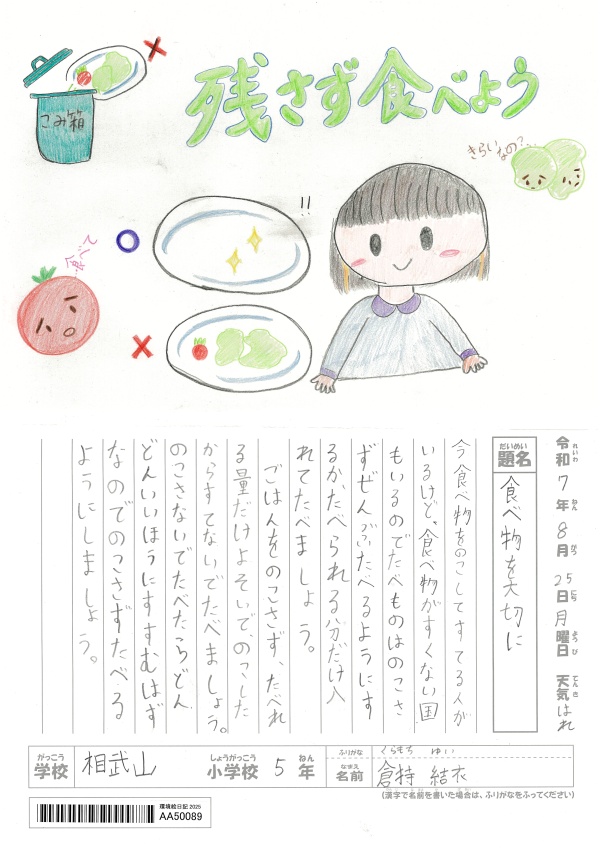 残さず食べよう
ごみ箱
きらいなの?…
たべて…
!!
令和7年8月25日月曜日 天気はれ
れいわ ねん がつ にち ようび てんき
だいめい
題名 食べ物を大切に
今食べ物をのこしてすてる人が
いるけど。食べ物がすくない国
もいるのでたべものはのこさ
ずぜんぶたべるようにす
るか、たべられる分だけ入
れてたべましょう。
ごはんをのこさず、たべれ
る量だけよそいで、のこした
からすてないでたべましょう。
のこさないでたべたらどん
どんいいほうにすすむはず
なのでのこさずたべる
ようにしましょう。
がっこう しょうがっこう ねん
学校 相武山 小学校 5年
ふりがな くらもち ゆい
なまえ
名前 倉持 結衣
(漢字で名前を書いた場合は、ふりがなをふってください)
環境絵日記 2025
AA50089